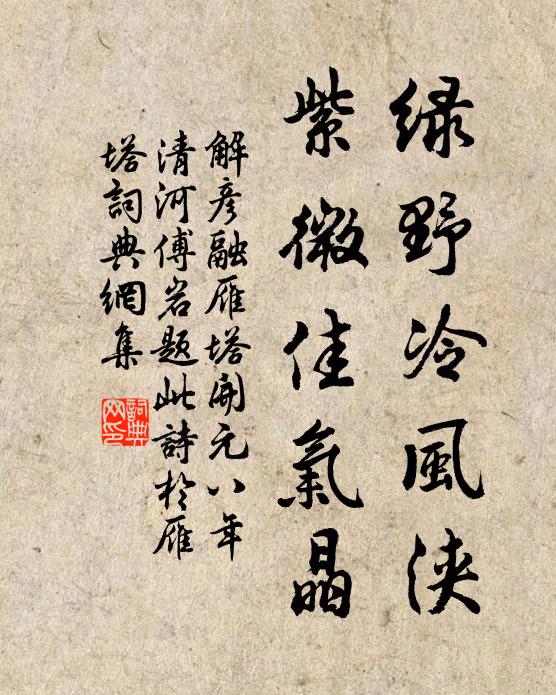 緑野冷風浹
紫微佳氣晶
解彥融雁塔開元八年
清河傅岩題此詩於雁
塔詞典網集
詞典网印